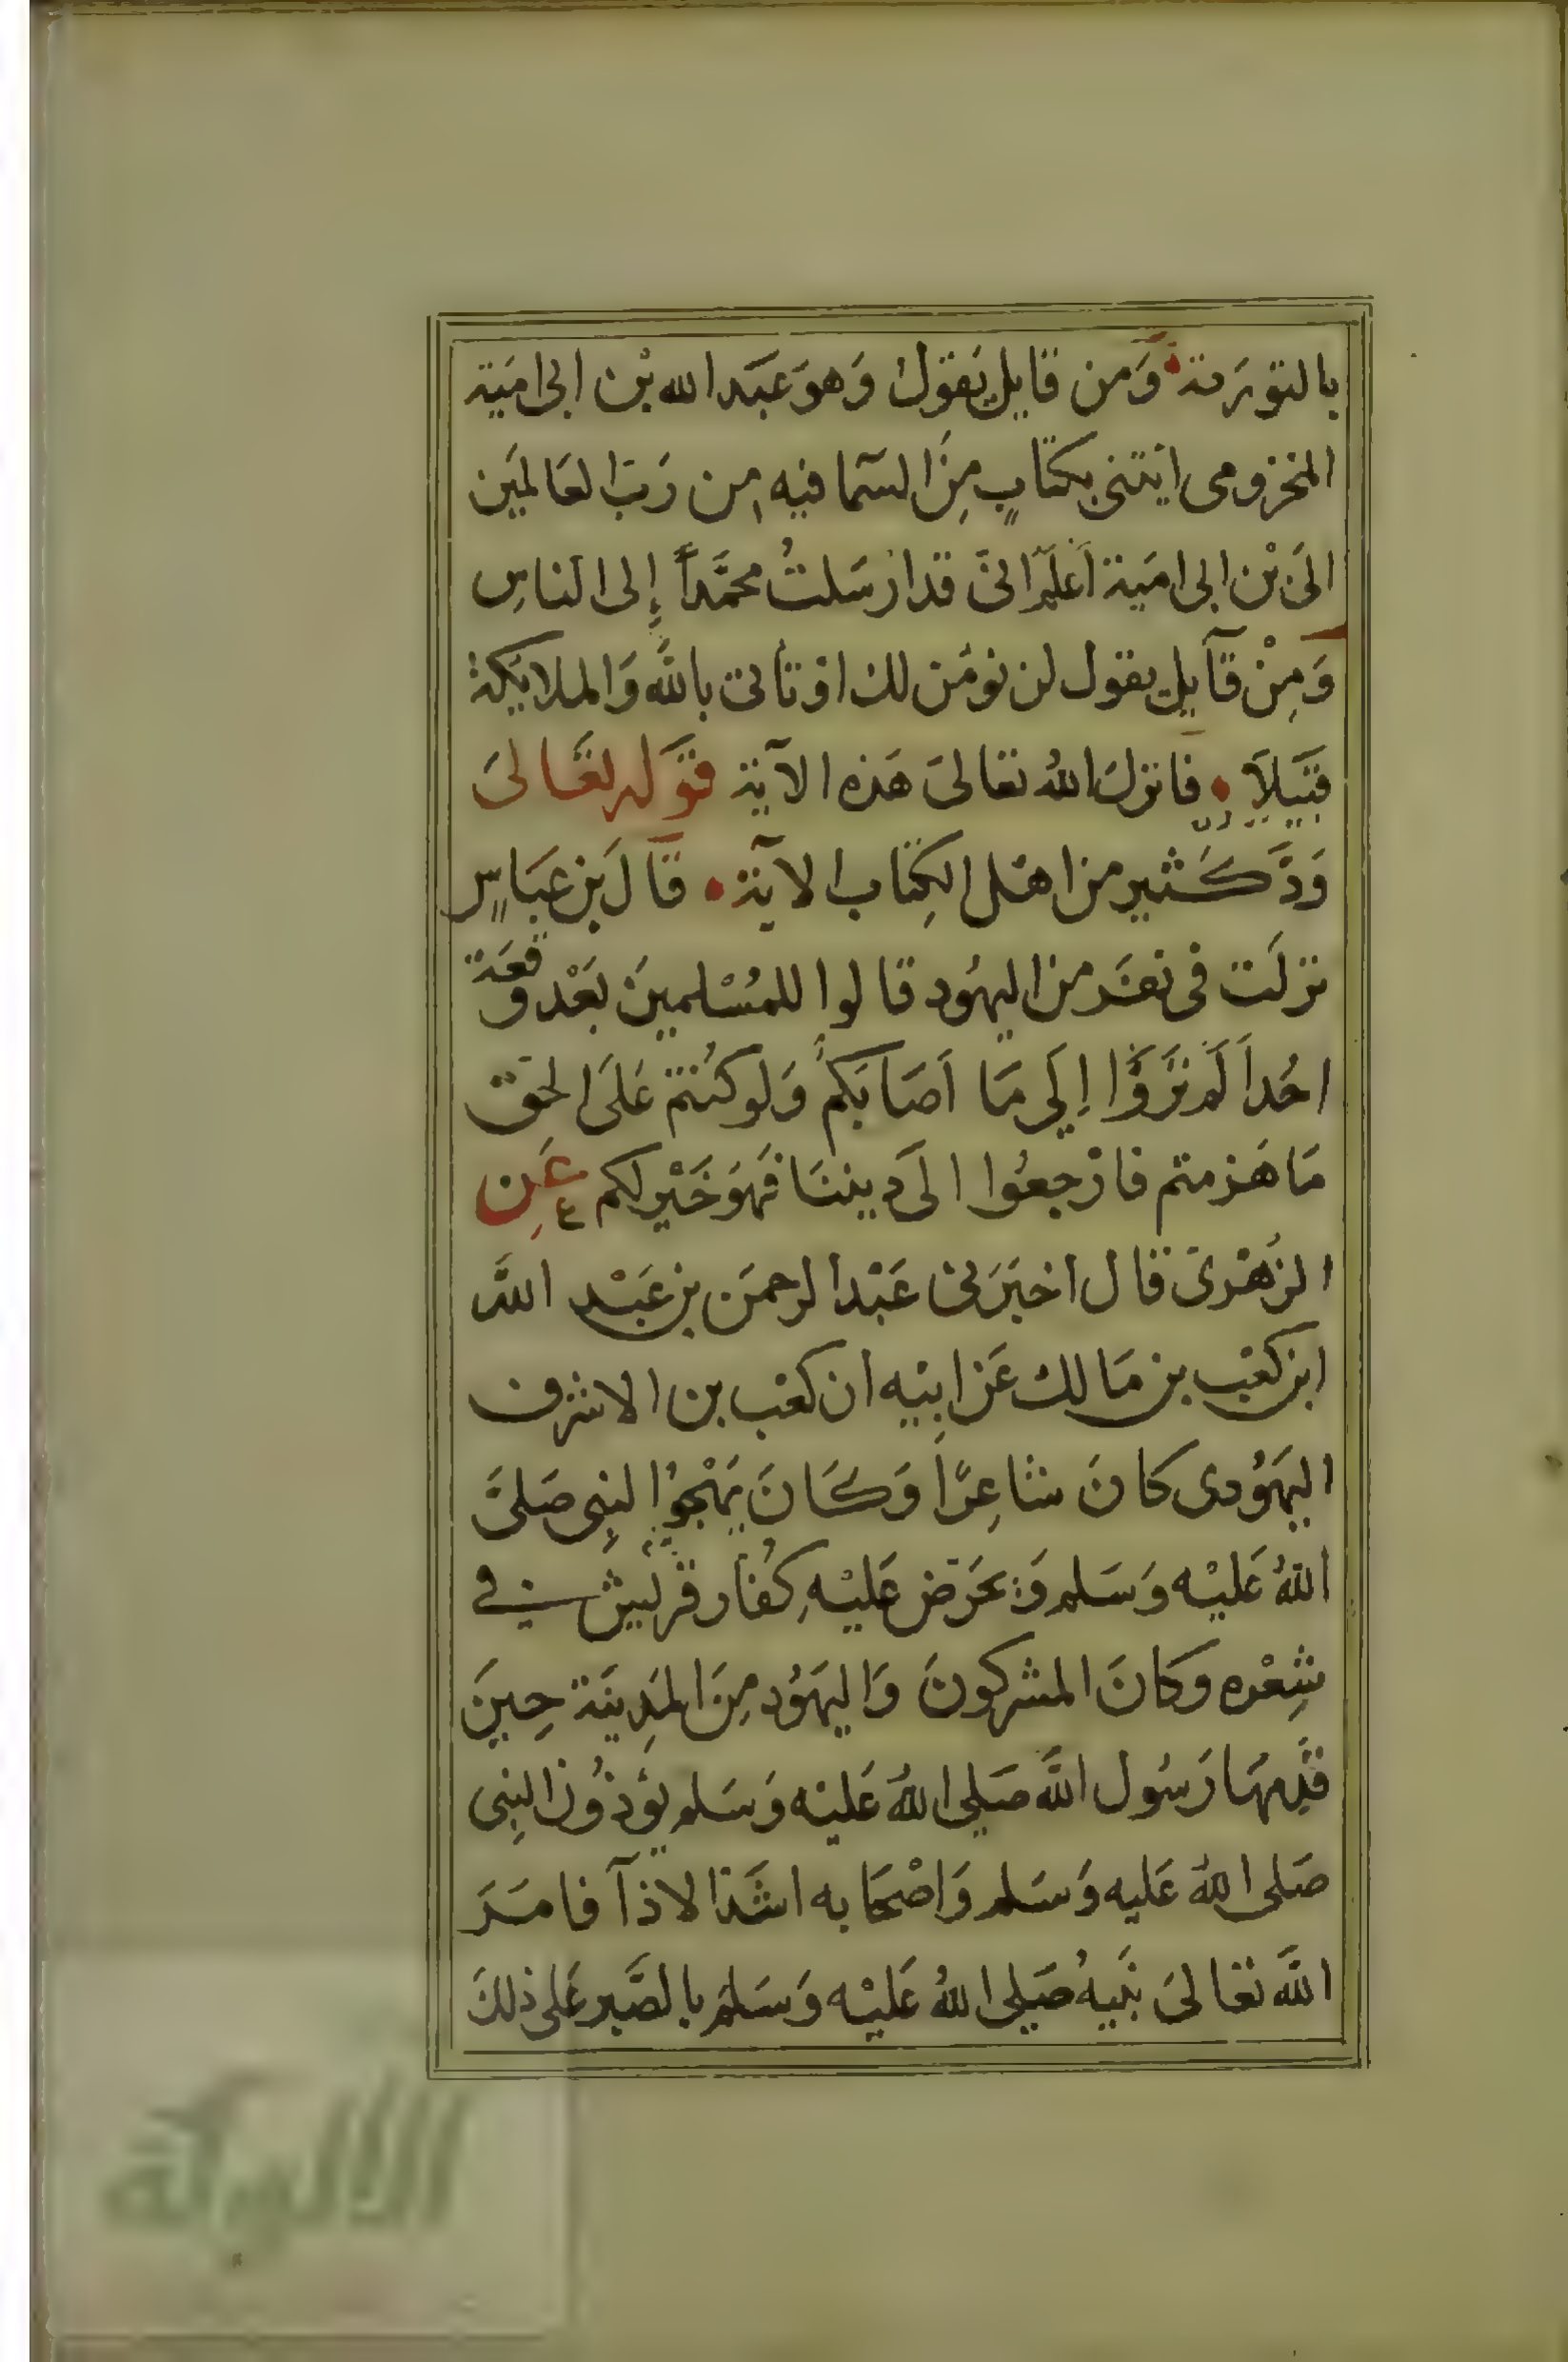 بالتورية وَمن قايل يَقول وَهوَ عَبَدا لله بْن ابى امَية
المخزومى ايتنى بكتابٍ مِنَ السَمآ فيه من رَبّ العَالمَين
الىَ بْن ابى امَية اَعلَم انىّ قدارْسَلتُ محمَّداً إِلى الناسِ
وَمِنْ قآيل يقول لن نومَن لك اوتأتى بالله وَالملايَكة
قَبيَلاً فانزلَ اللهُ تعَالىَ هَذه الآية قوَله تعَالىَ
وَدَّ كَثير من اهْل الكِتاب الآية قآلَ بن عبَاسٍ
نزلَت فى نفَر من اليهُود قالوا للمُسْلمينَ بَعْد وقعَة
احُداً لَم ترَوَّا إِلَى مَا اَصَابَكم وَلو كُنتم عَلَى الحَق
مَا هَزمتم فارْجعُوا الىَ ديننَا فَهوَ خَيْر لكم عَن
الزُهْرىَ قال اخبَرَنى عَبْدا لرحمَن بن عَبْد الله
ابن كعْب بن مَالك عَن ابيْه ان كعْب بن الاشرف
اليَهُودى كانَ شاعِرًا وَكَانَ يَهْجوُا لنِبى صَلىَ
اللهُ عَليْه وَسَلم وَيحَرّض عَليْهِ كُفار قرَيش فى
شِعْره وكانَ المشركونَ وَاليهَوُد مِنَ المَدِينَة حِينَ
قَدِمهَا رَسُول اللهَ صَلى اللهُ عَليْه وَسَلم يؤذوُن النِبى
صَلى اللهُ عَليه وَسَلم وَاصْحَابه اشَدّ الاذآ فامَرَ
اللهَ تعَالىَ نَبيهُ صَلى اللهُ عَليْه وَسَلمَ بالصَّبر عَلى ذلكَ
الألوكة